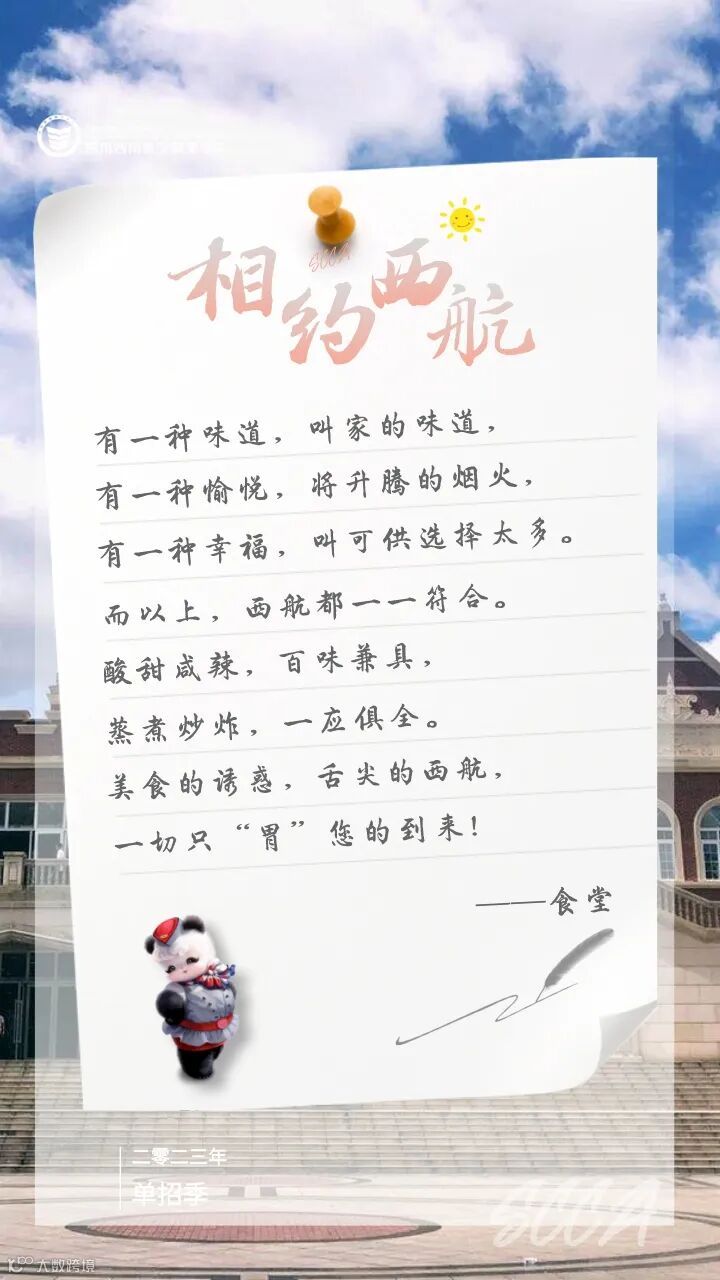 相约西航
SCCA
有一种味道，叫家的味道，
有一种愉悦，将升腾的烟火，
有一种幸福，叫可供选择太多。
而以上，西航都一一符合。
酸甜咸辣，百味兼具，
蒸煮炒炸，一应俱全。
美食的诱惑，舌尖的西航，
一切只“胃”您的到来！
——食堂
二零二三年
单招季
SCCA
大数跨境